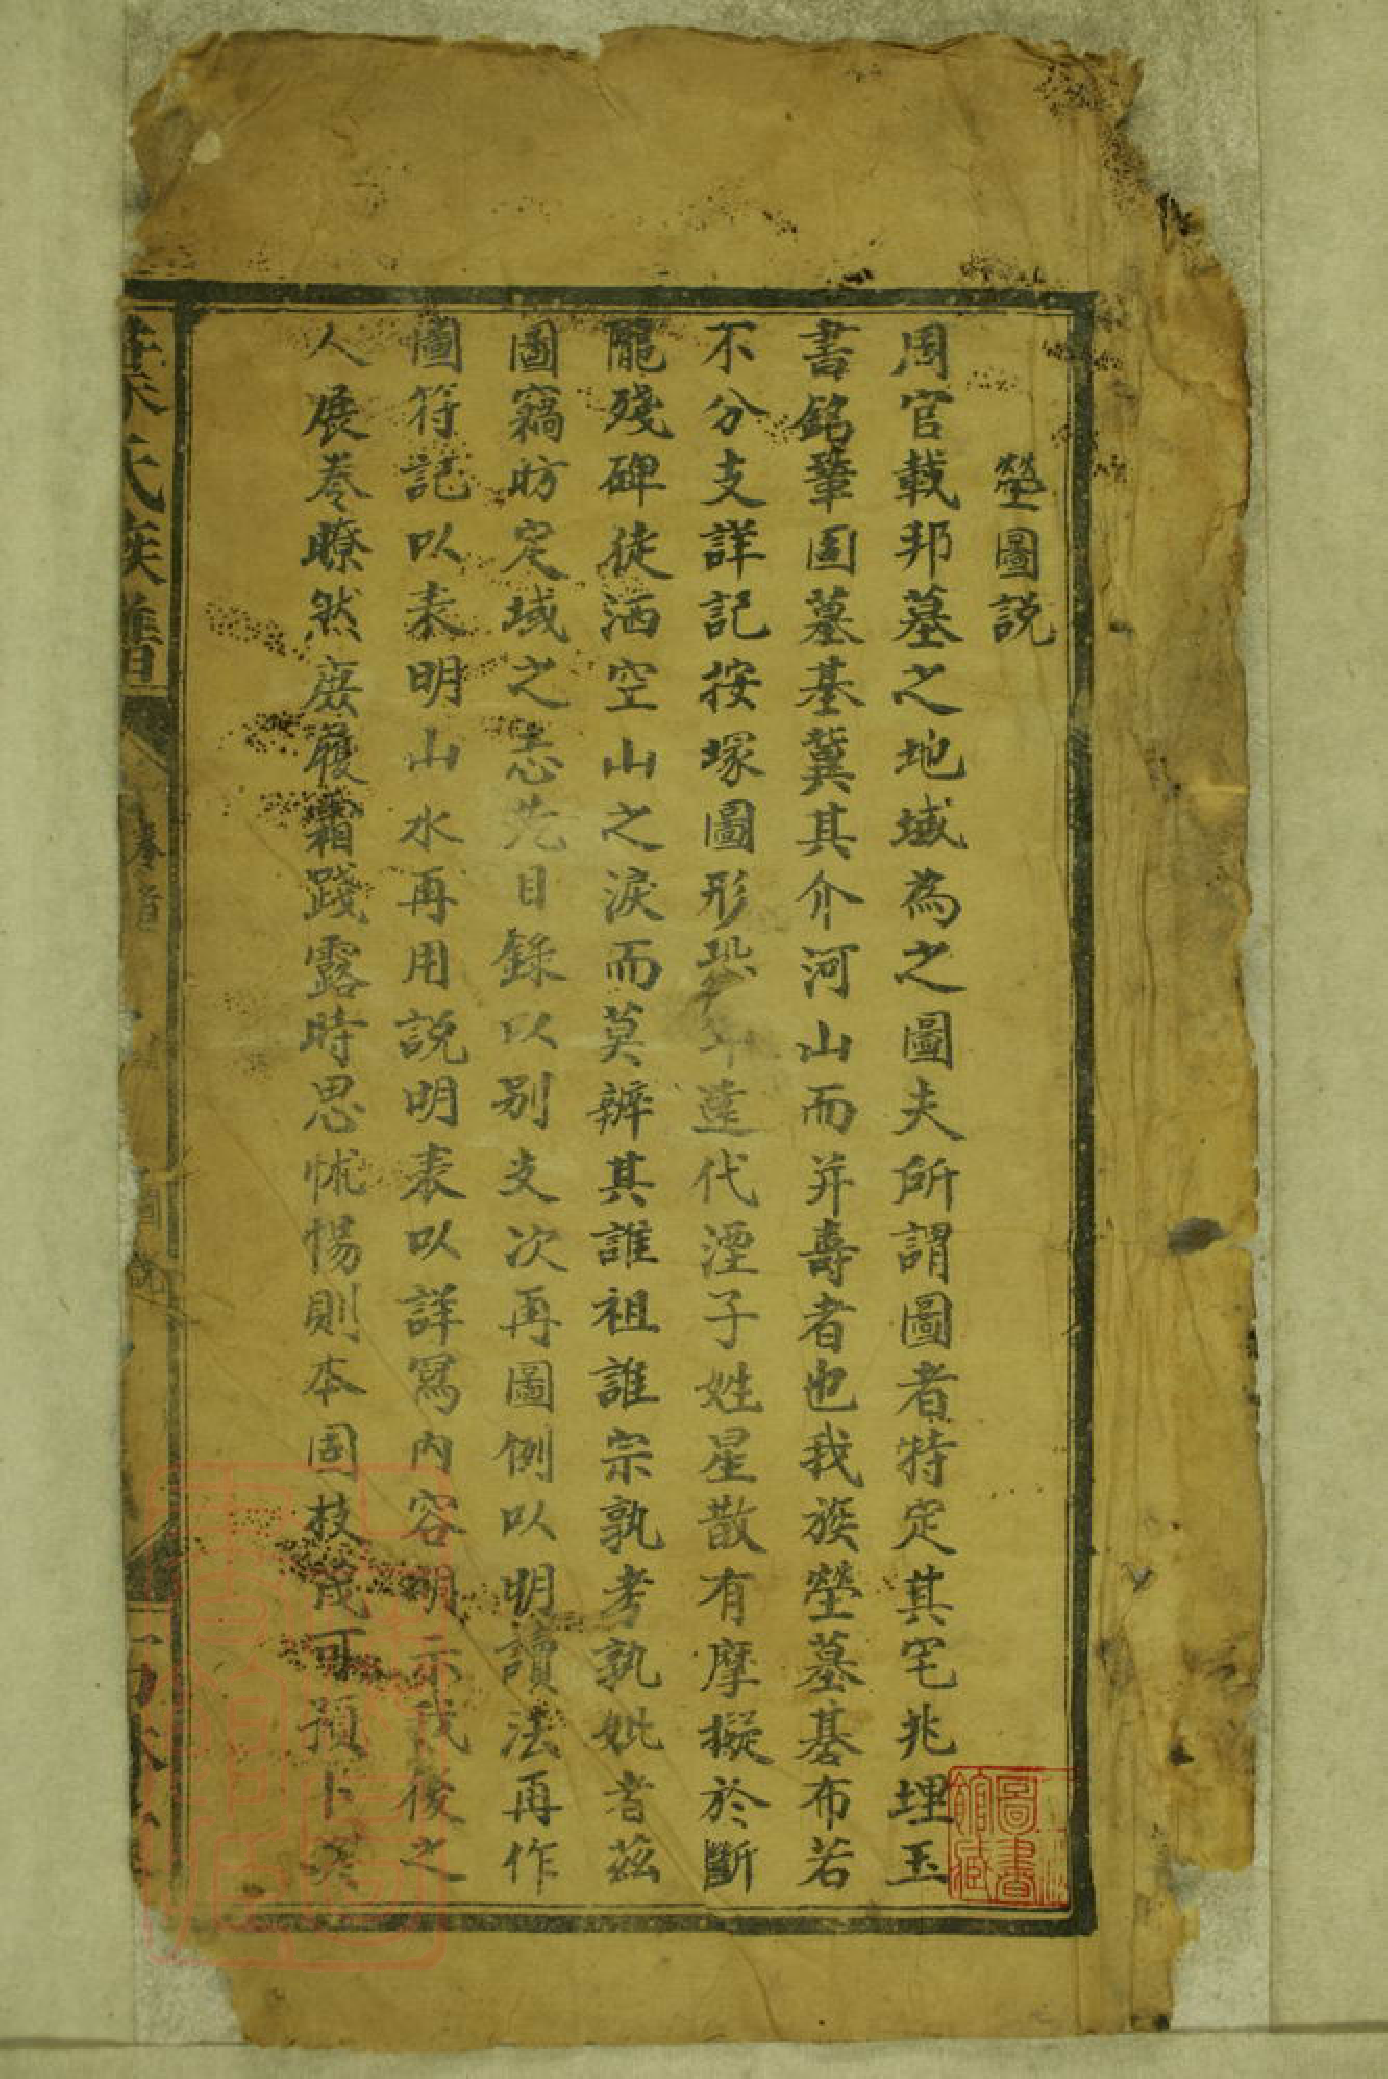 塋圖説
周官載邦墓之地域為之圖夫所謂圖者特定其宅兆埋玉
書銘鞏固墓基冀其介河山而并壽者也我族塋墓碁布若
不分支詳記按塚圖形恐年遠代湮子姓星散有摩擬於斷
隴殘碑徒洒空山之淚而莫辨其誰祖誰宗孰考孰妣者茲
圖竊昉定域之志先目錄以别支次再圖例以明讀法再作
圖符記以表明山水再用説明表以詳寫内容明示我後之
人展卷瞭然庶履霜踐露時思怵惕則本固枝茂可預卜矣
葉氏族譜 卷首 圖説
圖書館藏